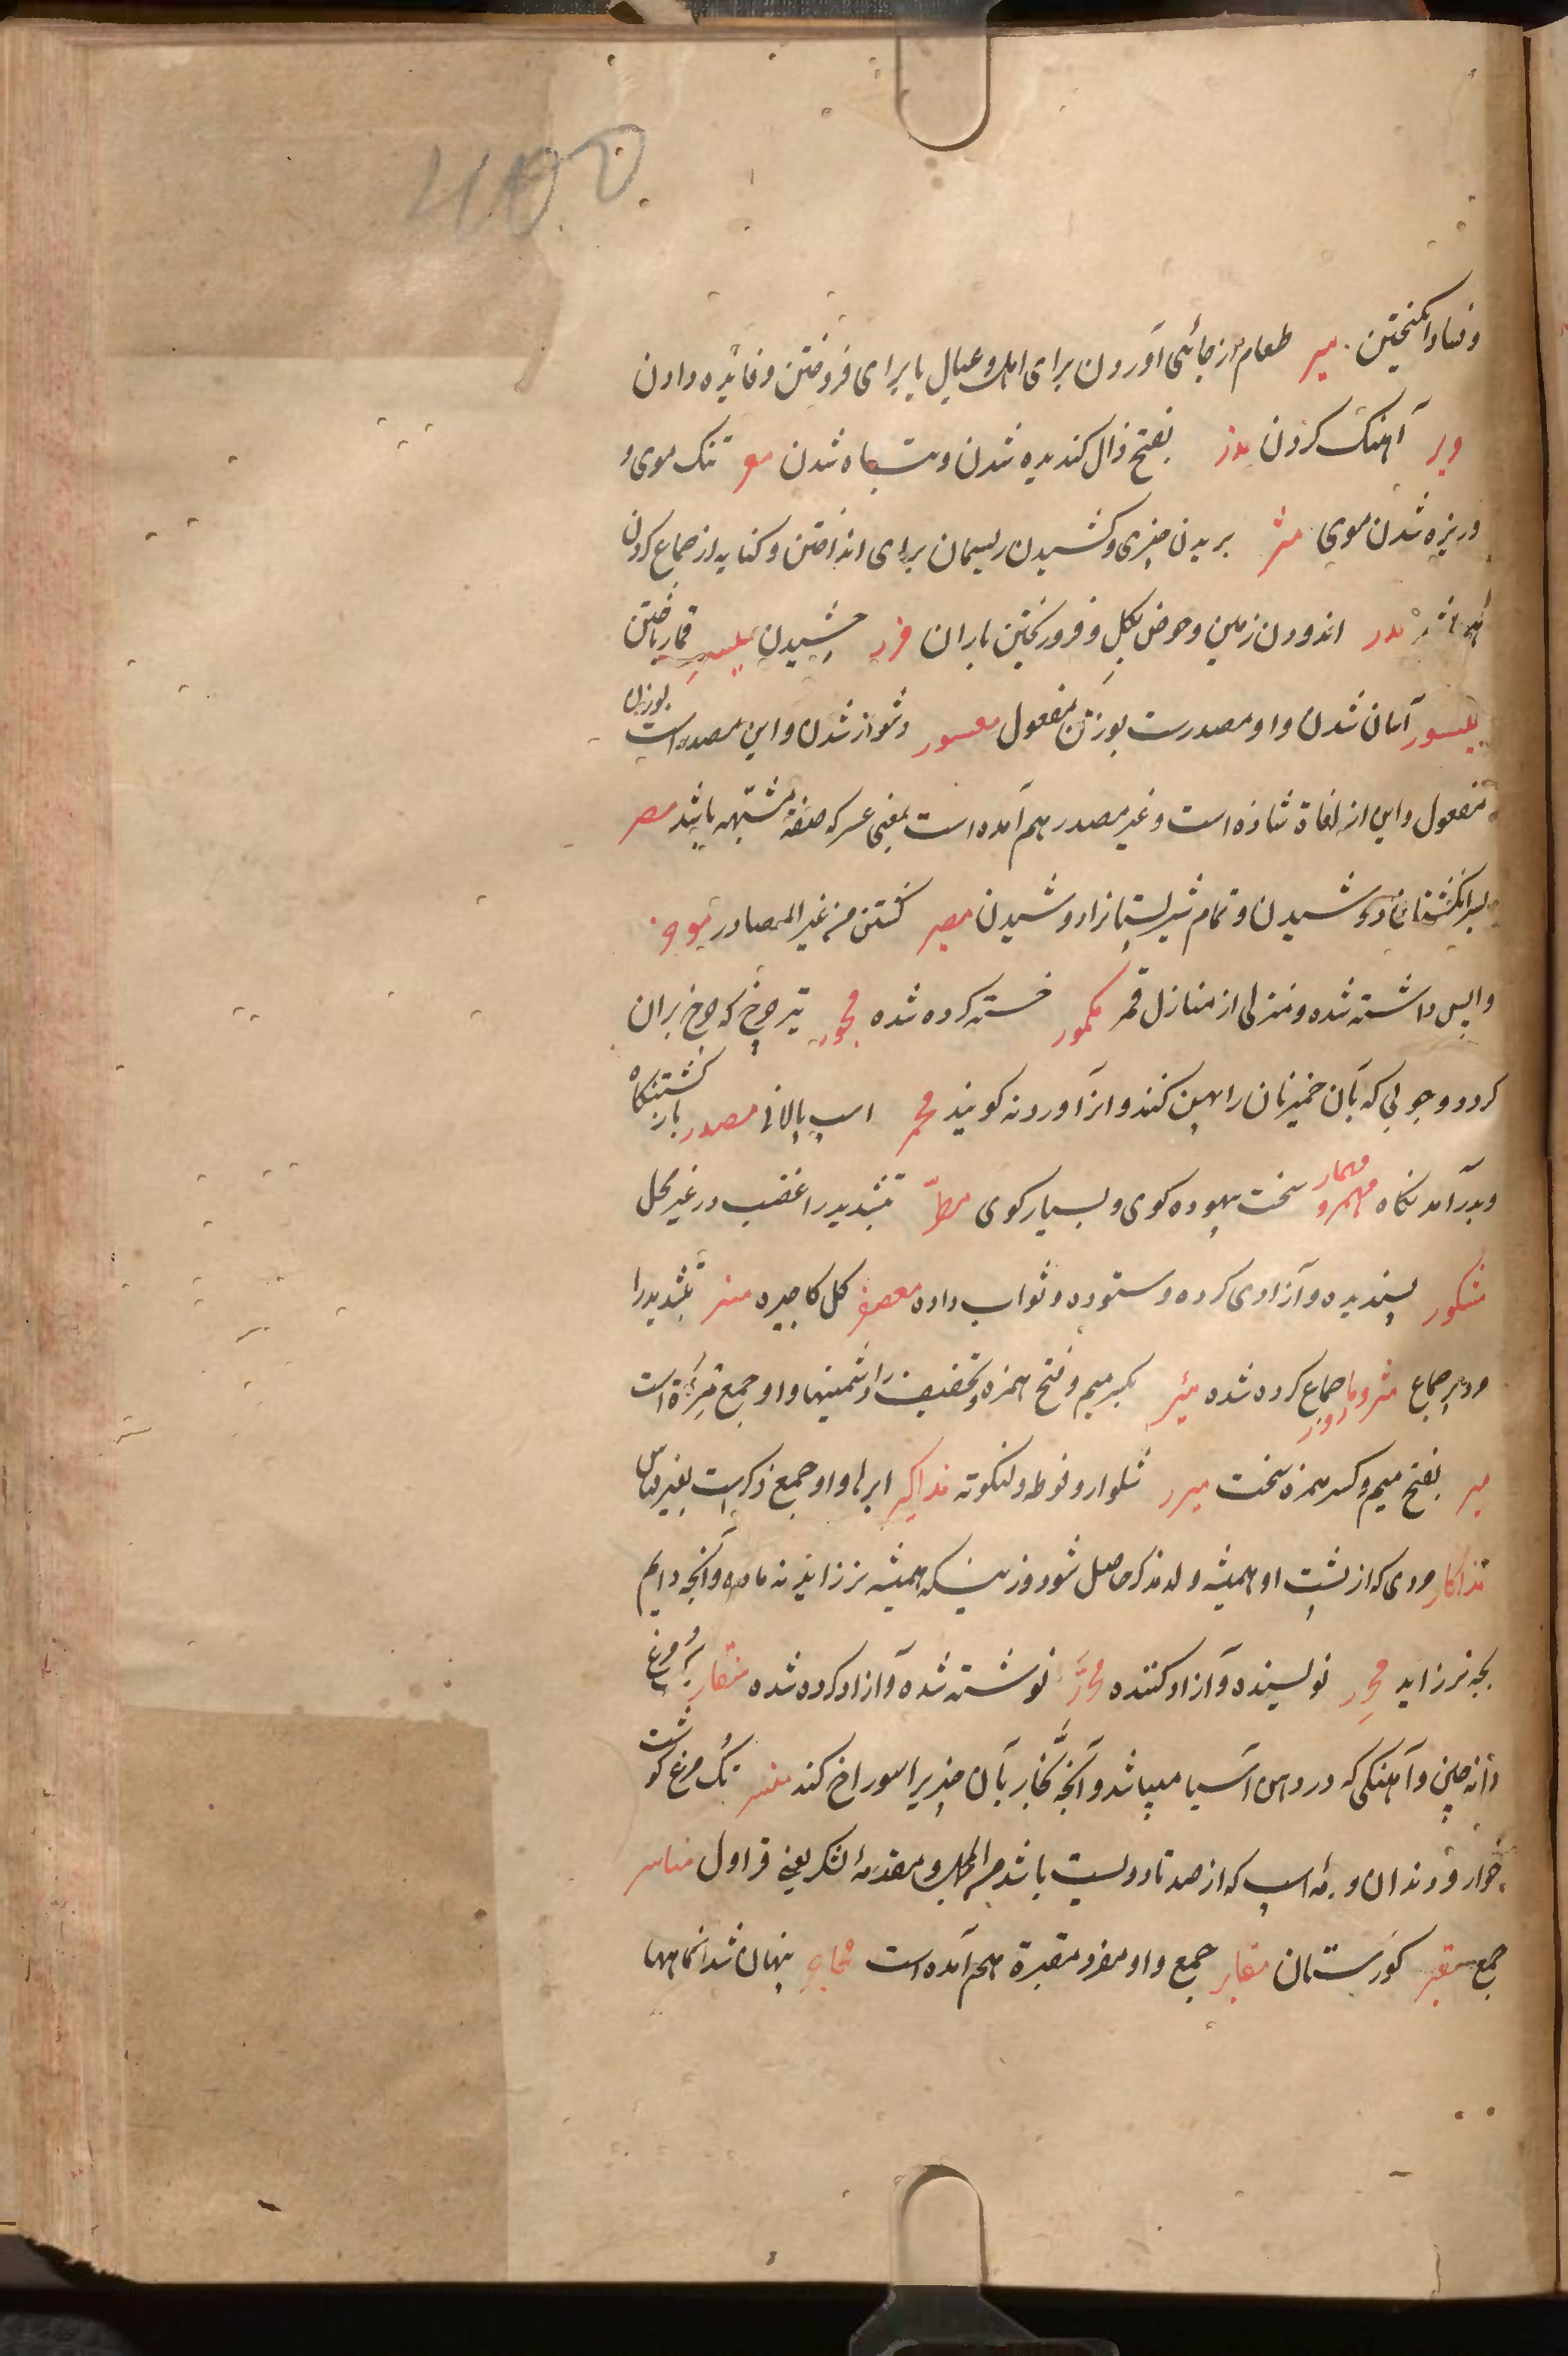 400
وفساد انگیختن میر طعام از جائی آوردن برای اهل و عیال یا برای فروختن و فائده دادن
و بر آهنک کردن مذر بفتح ذال کندیده شدن و تباه شدن معر تنک موی و
و ریزه شدن موی متر بریدن چیزی و کشیدن ریسمان برای انداختن و کنایه از جماع کردن
مدر اندودن زمین و حوض بکل و فرو ریختن باران مزر چشیدن میسر قمار باختن
میسور آسان شدن و او مصدرست بوزن مفعول معسور دشوار شدن و این مصدر است بوزن
مفعول و این از لغاة شاذه است و غیر مصدر هم آمده است بمعنی عسر که صفة مشتبهه باشد مصر
بسر انکشتان دوشیدن و تمام شیر پستانرا دوشیدن مصیر کشتن من غیر المصادر
واپس داشته شده و منزلی از منازل قمر مکمور خسته کرده شده محور تیر چرخ که چرخ بران
کردد و چوبی که بآن خمیر نان را پهن کنند و انرا وردنه کویند محمر اسپ پالانی مصدر بازکشتنکاه
و بدرآمدنکاه مهمر و مهمار سخت بیهوده کوی و بسیار کوی مطر بتشدید را غضب در غیر محل
مشکور پسندیده و آزادی کرده و ستوده و ثواب داده معصفر کل کاجیره بتشدید را
جماع کرده شده مئر بکسر میم و فتح همزه و تخفیف را دشمنیها و او جمع مئرة است
میر بفتح میم و کسر همزه سخت میزر شلوار و فوطه و لنکوته مذاکیر ایرها و او جمع ذکرست بغیر قیاس
مذکار مردی که از پشت او همیشه ولد مذکر حاصل شود و زنیکه همیشه نر زاید نه ماده و آنچه دایم
بچه نر زاید محرر نویسنده و آزاد کننده محرر نوشته شده و آزاد کرده شده منقار
دانه چین و آهنکی که در دهن آسیا میباشد و آنچه نجار بآن چیزیرا سوراخ کند منسر نک مرغ کوشت
خوار و دندان و رمه اسپ که از صد تا دویست باشد و مقدمه لشکر یعنی قراول مناسر
جمع مقبر کورستان مقابر جمع و او مفرد مقبرة هم آمده است پنهان شدنکاهها